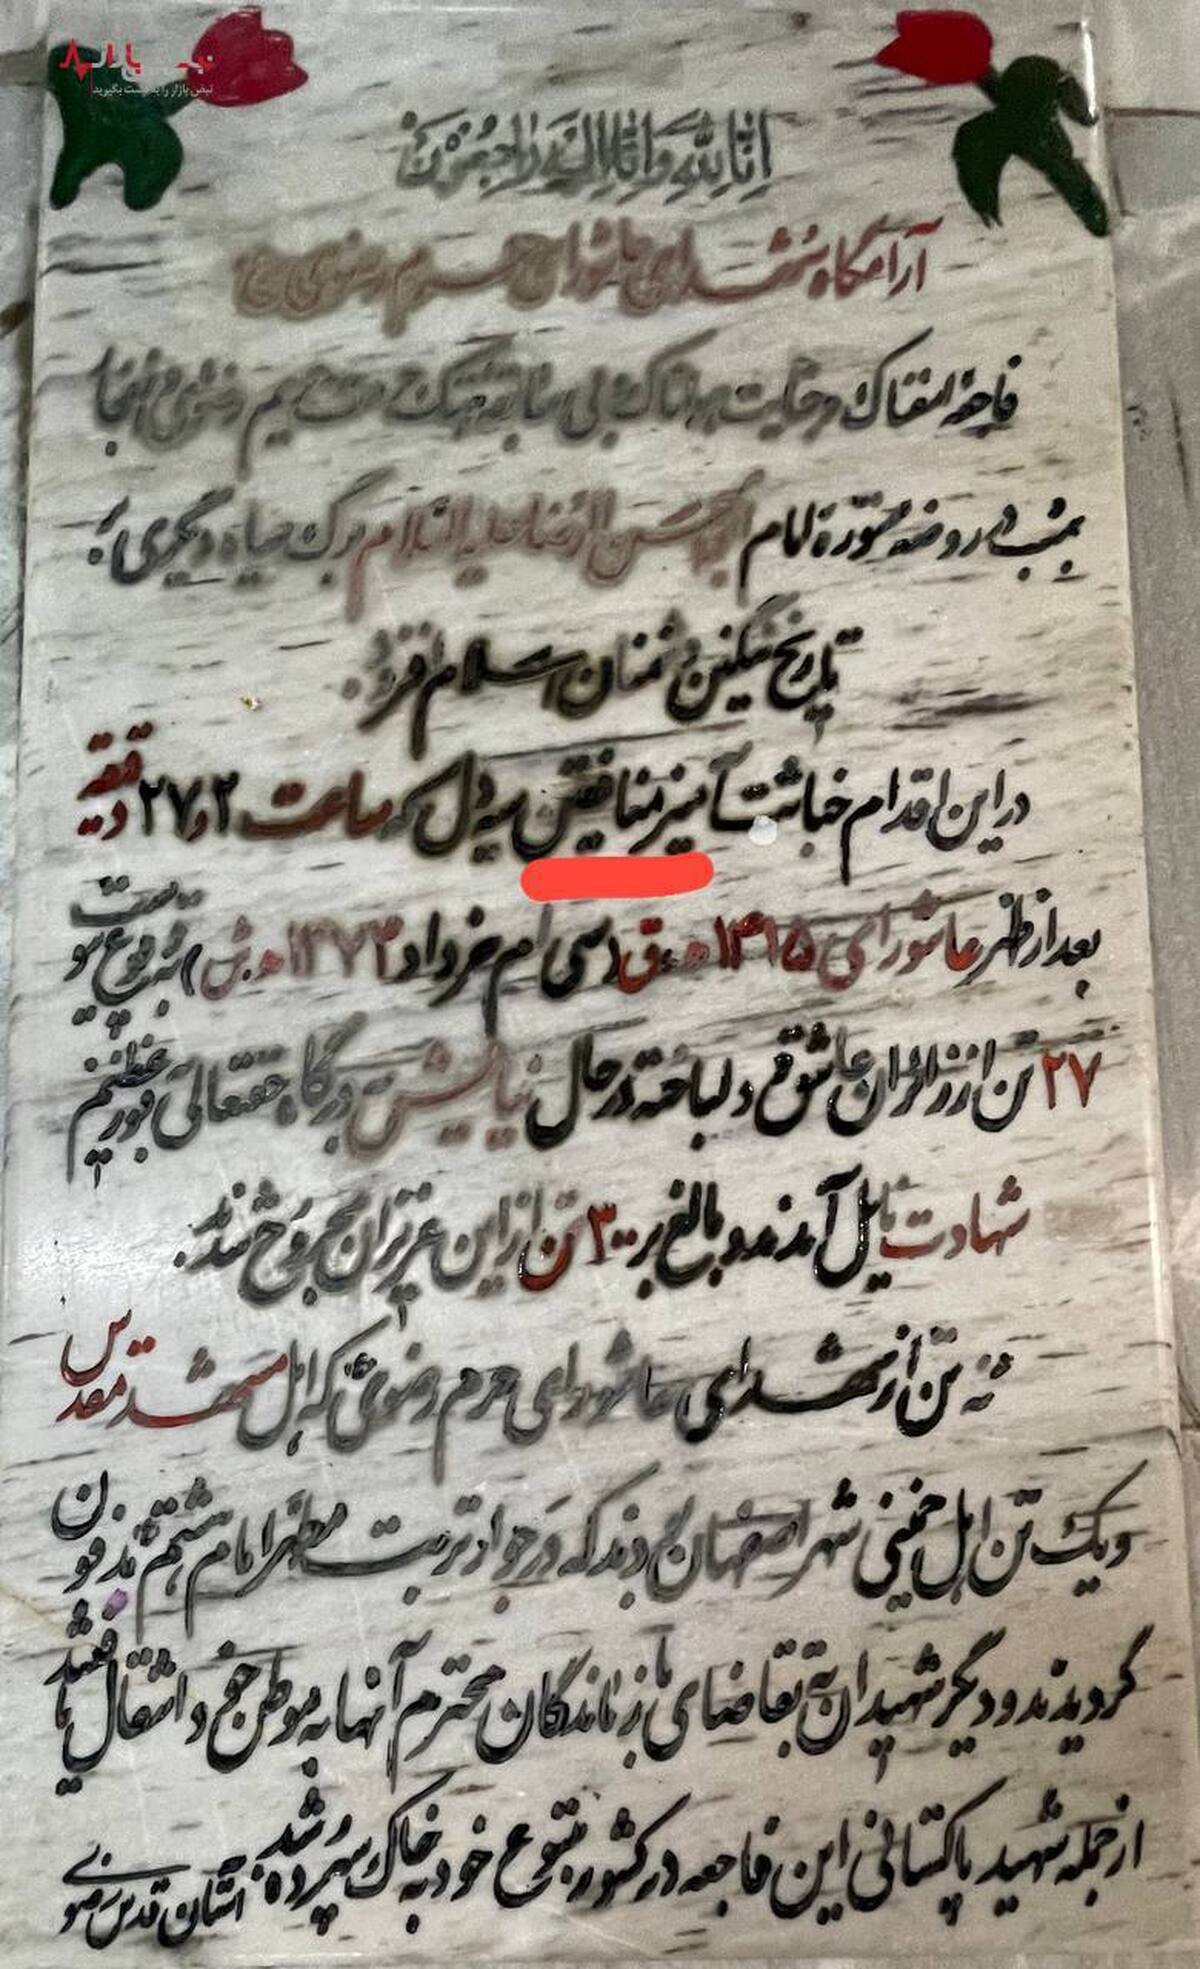 نبض بازار
نبض بازار را به دست بگیرید
انا لله و انا الیه راجعون
آرامگاه شهدای عاشورای حرم رضوی ع
فاجعه اسفناک و جنایت هولناک بی سابقه هتک حرمت حریم رضوی و انفجار
بمب در روضه منوره امام ابوالحسن الرضا علیه السلام برگ سیاه دیگری بر
تاریخ ننگین دشمنان اسلام افزود.
در این اقدام خباثت آمیز منافقین سیه دل که ساعت ۲ و ۲۷ دقیقه
بعد از ظهر عاشورای ۱۴۱۵ ه.ق (سی ام خرداد ۱۳۷۳ ه.ش) به وقوع پیوست
۲۷ تن از زائران عاشق و دلباخته در حال نیایش به درگاه حقتعالی به فوز عظیم
شهادت نایل آمدند و بالغ بر ۳۰۰ تن از این عزیزان مجروح شدند.
نه تن از شهدای عاشورای حرم رضوی که اهل مشهد مقدس
و یک تن اهل خمینی شهر اصفهان بودند که در جوار تربت مطهر امام هشتم مدفون
گردیدند و دیگر شهیدان به تقاضای بازماندگان محترم آنها به موطن خود انتقال یافتند
از جمله شهید پاکستانی این فاجعه در کشور متبوع خود به خاک سپرده شد.
آستان قدس رضوی